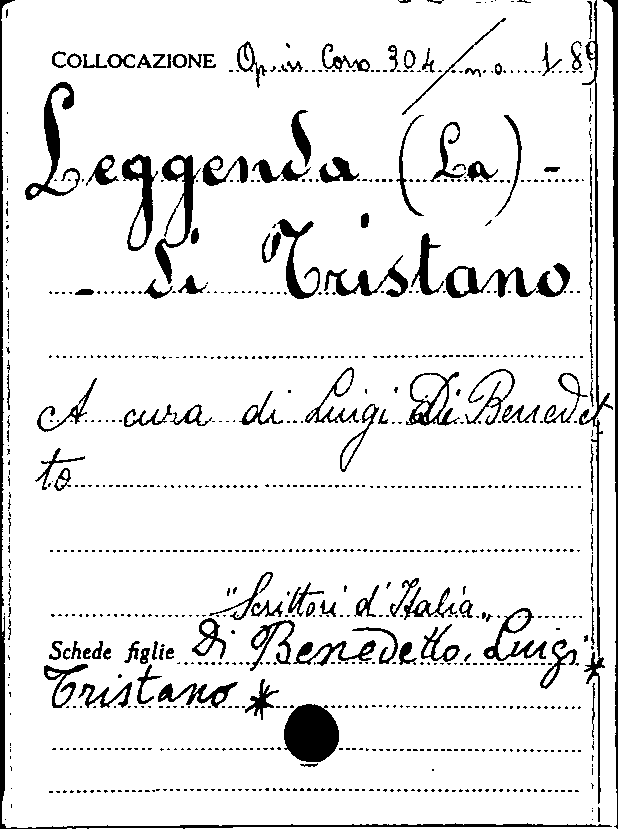 COLLOCAZIONE Op. in Corso 304/n.o 189
Leggenda (La) -
- di Tristano
A cura di Luigi Di Benedet
to
"Scrittori d'Italia„
Schede figlie Di Benedetto, Luigi *
Tristano *